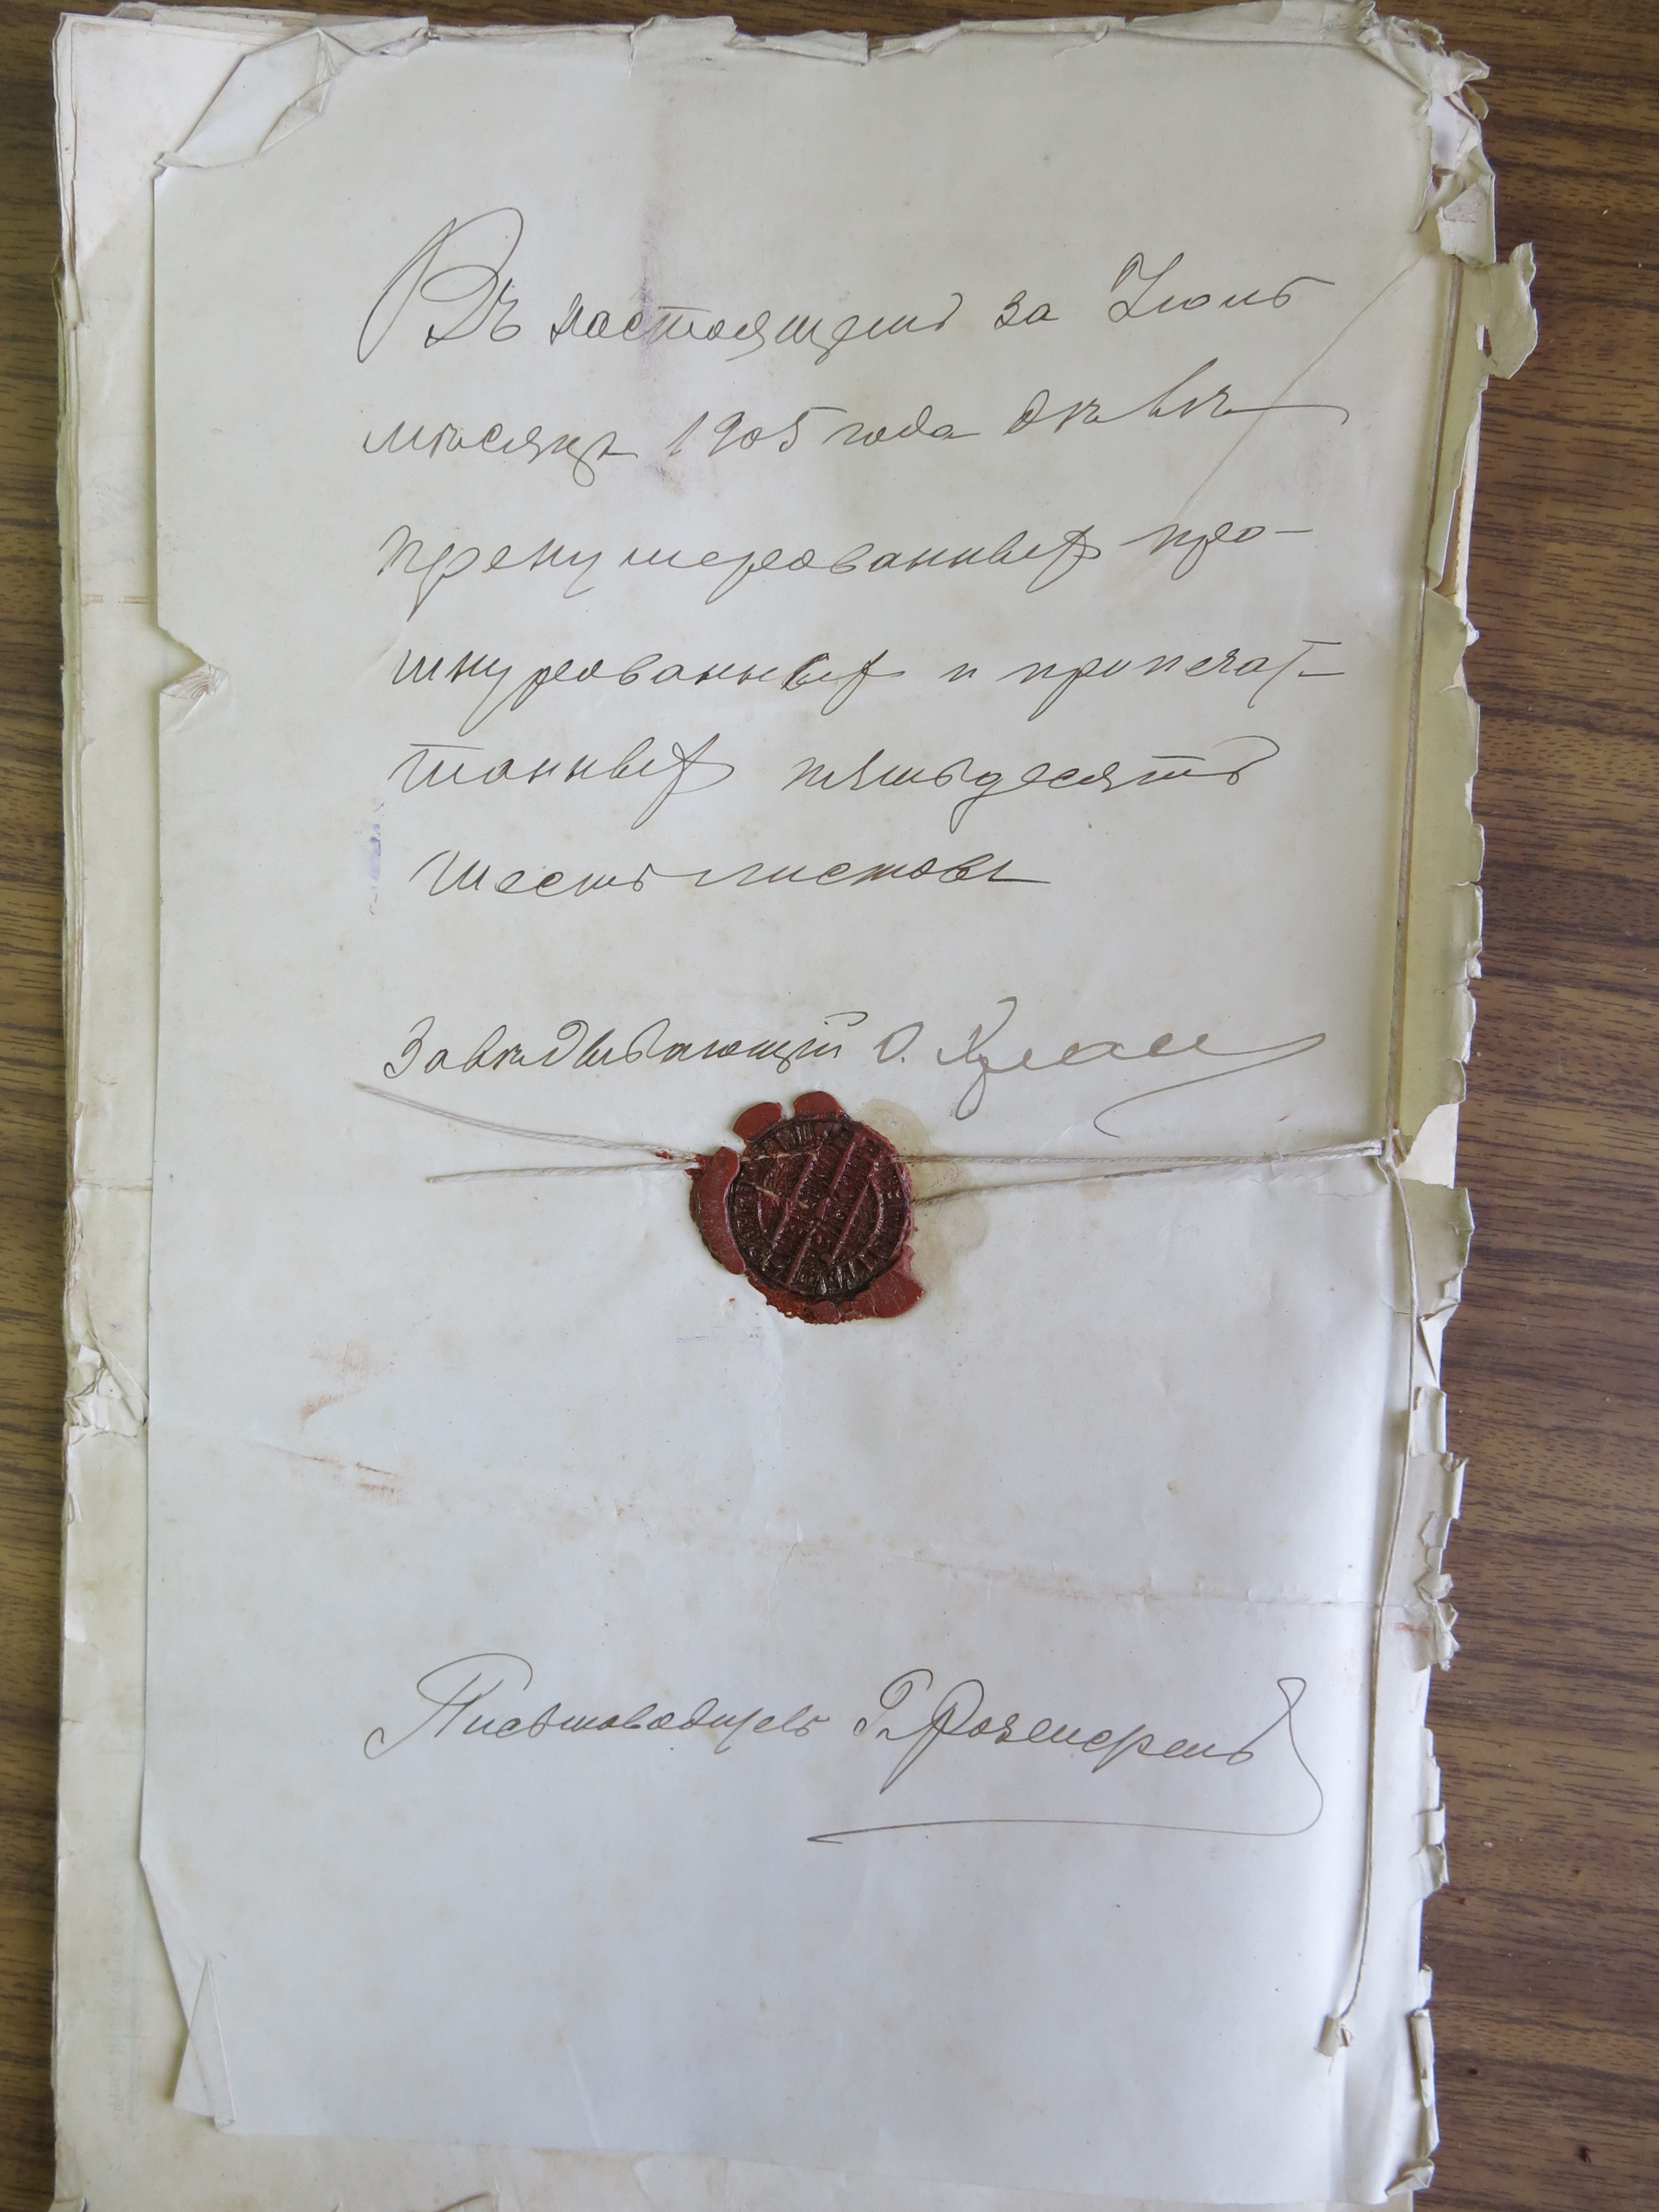 Въ настоящемъ за Іюнь
мѣсяцъ 1905 года дѣлѣ
пренумерованныхъ про-
шнурованныхъ и припечат-
танныхъ пятьдесятъ
шесть листовъ
Завѣдывающій О.
Письмоводитель Г.